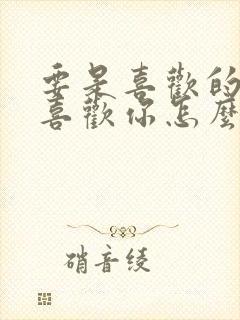 要是喜歡的
喜歡你怎麼
硝音綾